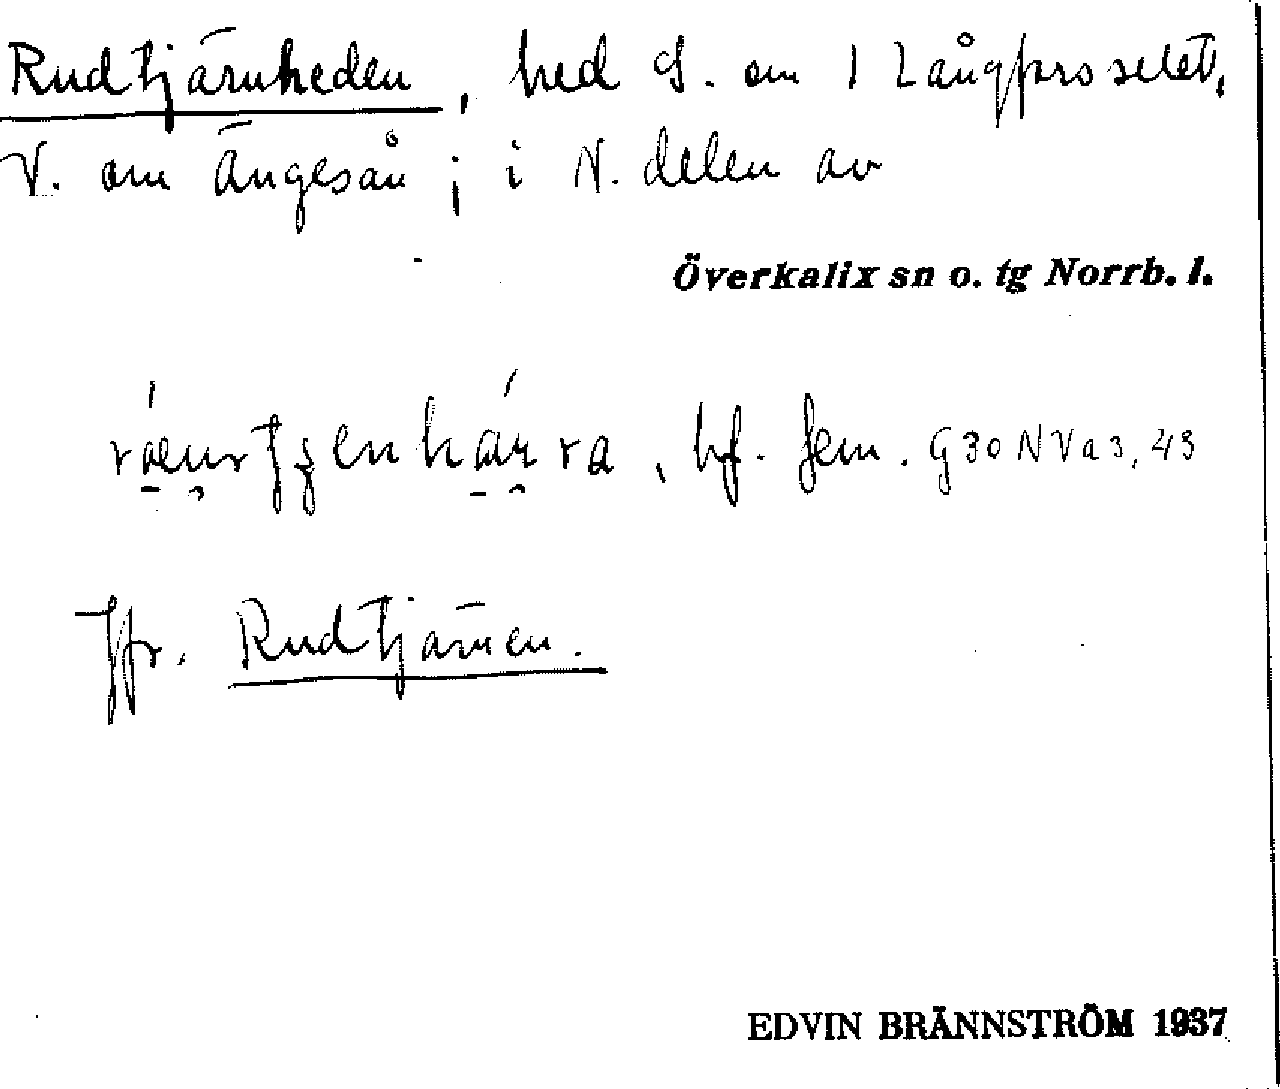 Rudtjärnheden, hed S. om 1 Långforsselet,
V. om Ängesån; i N. delen av
Överkalix sn o. tg Norrb. l.
, bf. fem. G30 NVa3,43
Jfr. Rudtjärnen.
EDVIN BRÄNNSTRÖM 1937